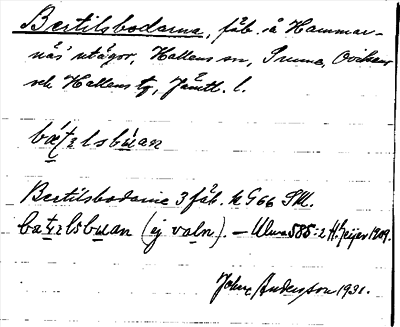 Bertilsbodarna, fäb. å Hammar-
näs' utägor, Hallens sn,
och Hallens tg, Jämtl. l.
bátzlsbùan
Bertilsbodarne 3 fäb. k G66 SM.
batzlsbuan (ej valn). – Ulma 585:2 H. Geijer 1909.
John Andersson 1931.